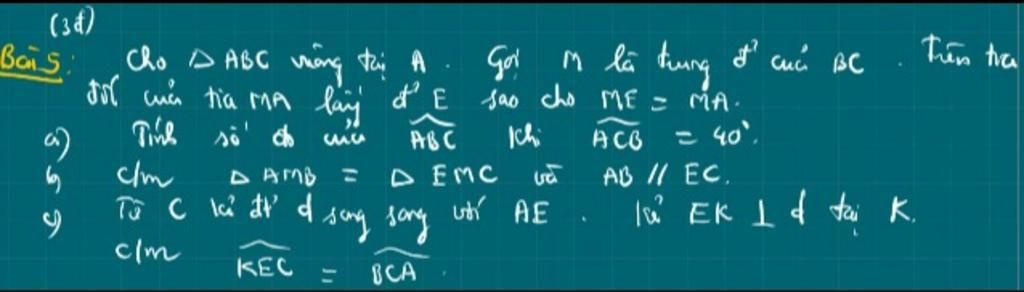 (3đ)
Bài 5: Cho △ ABC vuông tại A. Gọi M là trung đ' của BC. Trên tia
đối của tia MA lấy đ' E sao cho ME = MA.
a) Tính số đo của \widehat{ABC} khi \widehat{ACB} = 40°.
b) c/m △ AMB = △ EMC và AB // EC.
c) Từ C kẻ đt' d song song với AE. Kẻ EK ⊥ d tại K.
c/m \widehat{KEC} = \widehat{BCA}.